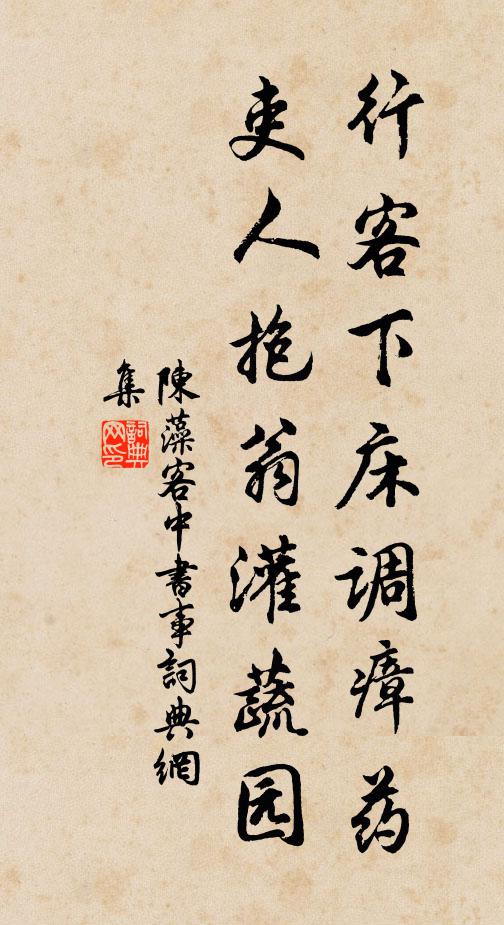 行客下床调瘴药
吏人抱翁灌蔬园
陳藻客中書事詞典網
集
詞典
网印